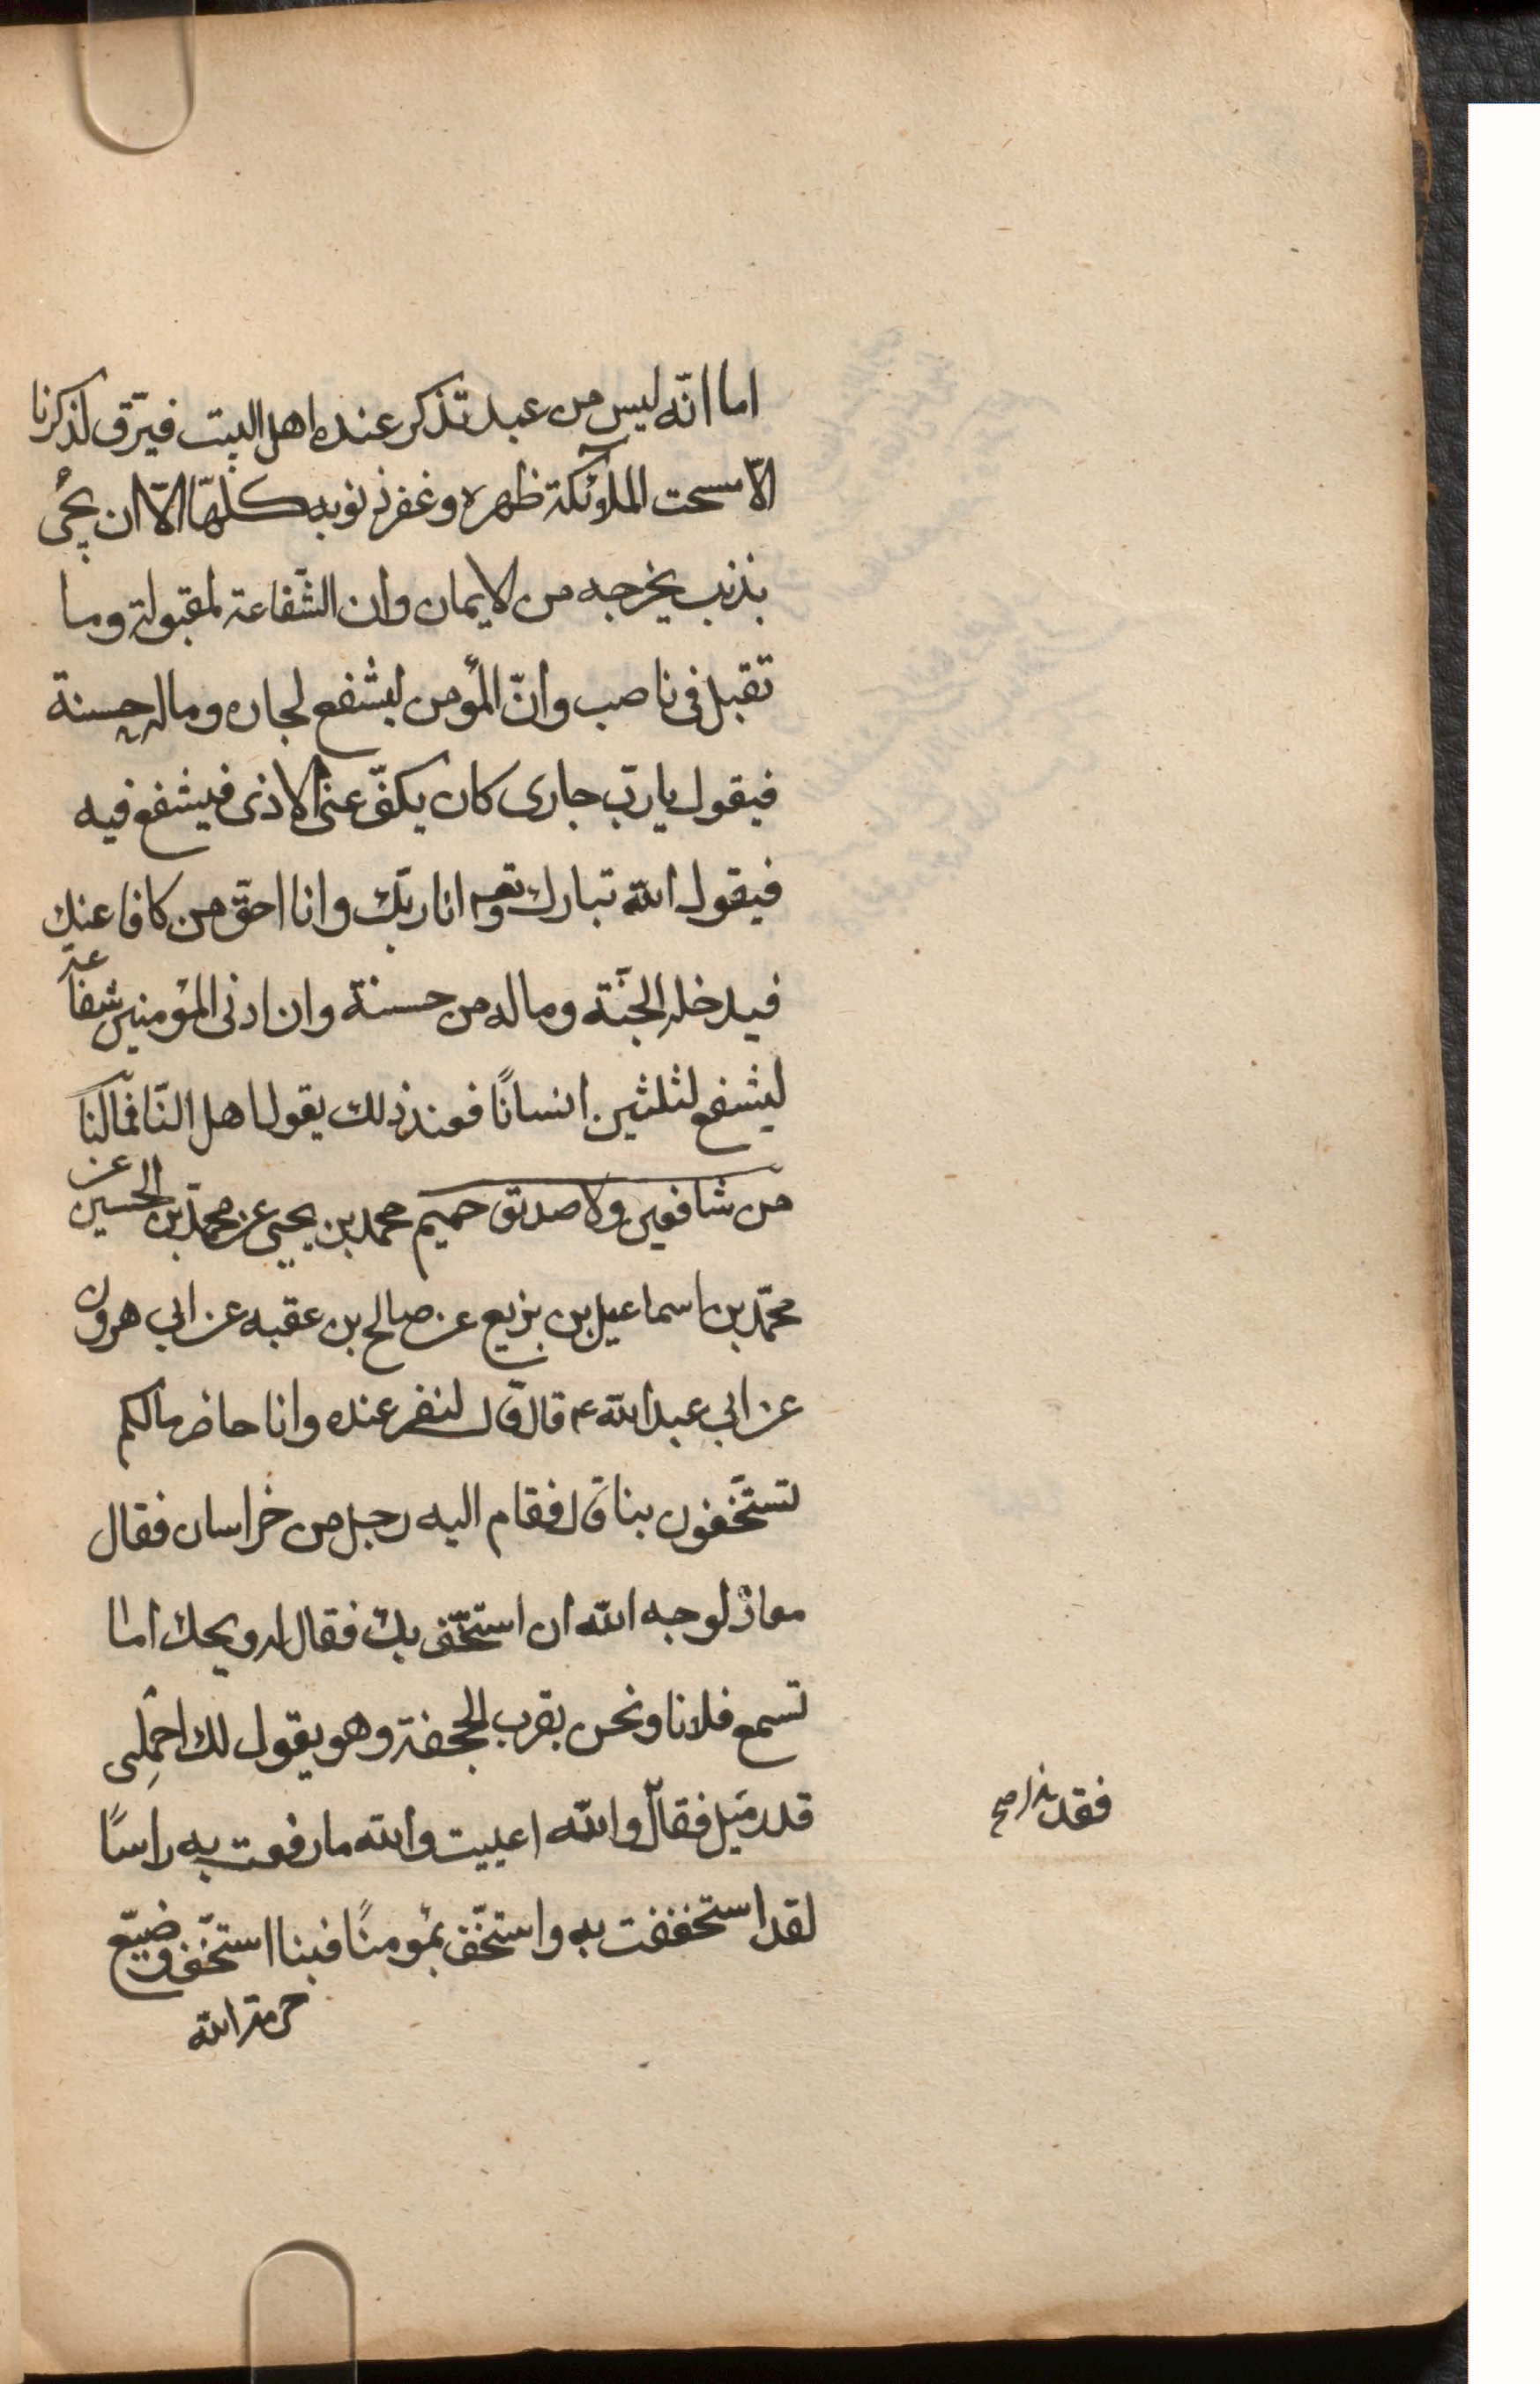 اما انّه ليس من عبد تذكر عنده اهل البيت فيرّق لذكرنا
الّا مسحت الملآئكة ظهره وغفر ذنوبه كلّها الّا ان يجئ
بذنب يخرجه من الايمان وان الشّفاعة لمقبولة وما
تقبل فى ناصب وانّ المؤمن ليشفع لجاره وماله حسنة
فيقول يا ربّ جارى كان يكفّ عنى الاذى فيشفع فيه
فيقول الله تبارك وتعه انا ربّك وانا احقّ من كافا عنك
فيدخله الجنّة وماله من حسنة وان ادنى المؤمنين شفاعة
ليشفع لثلثين انسانًا فعند ذلك يقول اهل النّا فمالنا
من شافعين ولا صديق حميم محمد بن يحيى عن محمّد بن الحسين عن
محمّد بن اسماعيل بن بزيع عن صالح بن عقبه عن ابي هرون
عن ابي عبد الله ع قال قال لنفر عنده وانا حاضر مالكم
تستخّفون بنا قال فقام اليه رجل من خراسان فقال
معاذ لوجه الله ان استخّف بك فقال له ويحك اما
تسمع فلانا ونحن بقرب الجحفة وهو يقول لك احمِلنى
قدر ميَل فقال والله اعييت والله ما رفعت به راسًا
لقد استخففت به واستخّف بمؤمنًا فبنا استخّف وضيّع
حرمة الله
فقد صح